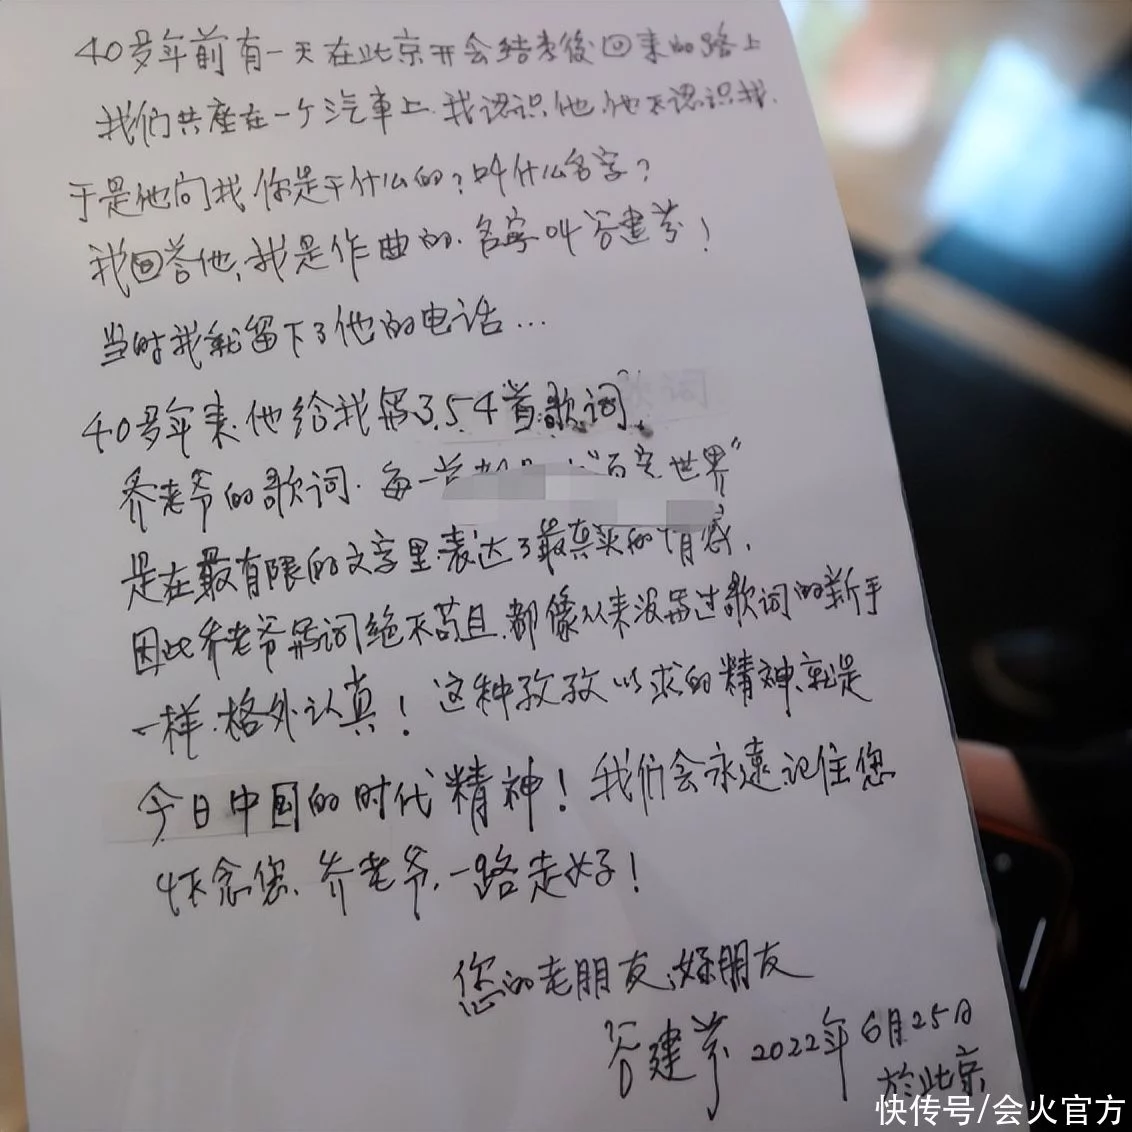 40多年前有一天在北京开会结束後回来的路上
我们共座在一个汽车上.我认识他,他不认识我.
于是他问我你是干什么的?叫什么名字?
我回答他,我是作曲的.名字叫谷建芬!
当时我就留下了他的电话…
40多年来.他给我写3.54首歌词,
乔老爷的歌词.每一首 “ 世界”
是在最有限的文字里表达了最真实的情感,
因此乔老爷写词绝不苟且.都像从来没写过歌词的新手
一样.格外认真!这种孜孜以求的精神、就是
今日中国的时代精神!我们会永远记住您
怀念您、乔老爷、一路走好!
您的老朋友、好朋友
谷建芬 2022年6月25日
於北京
快传号/会火官方